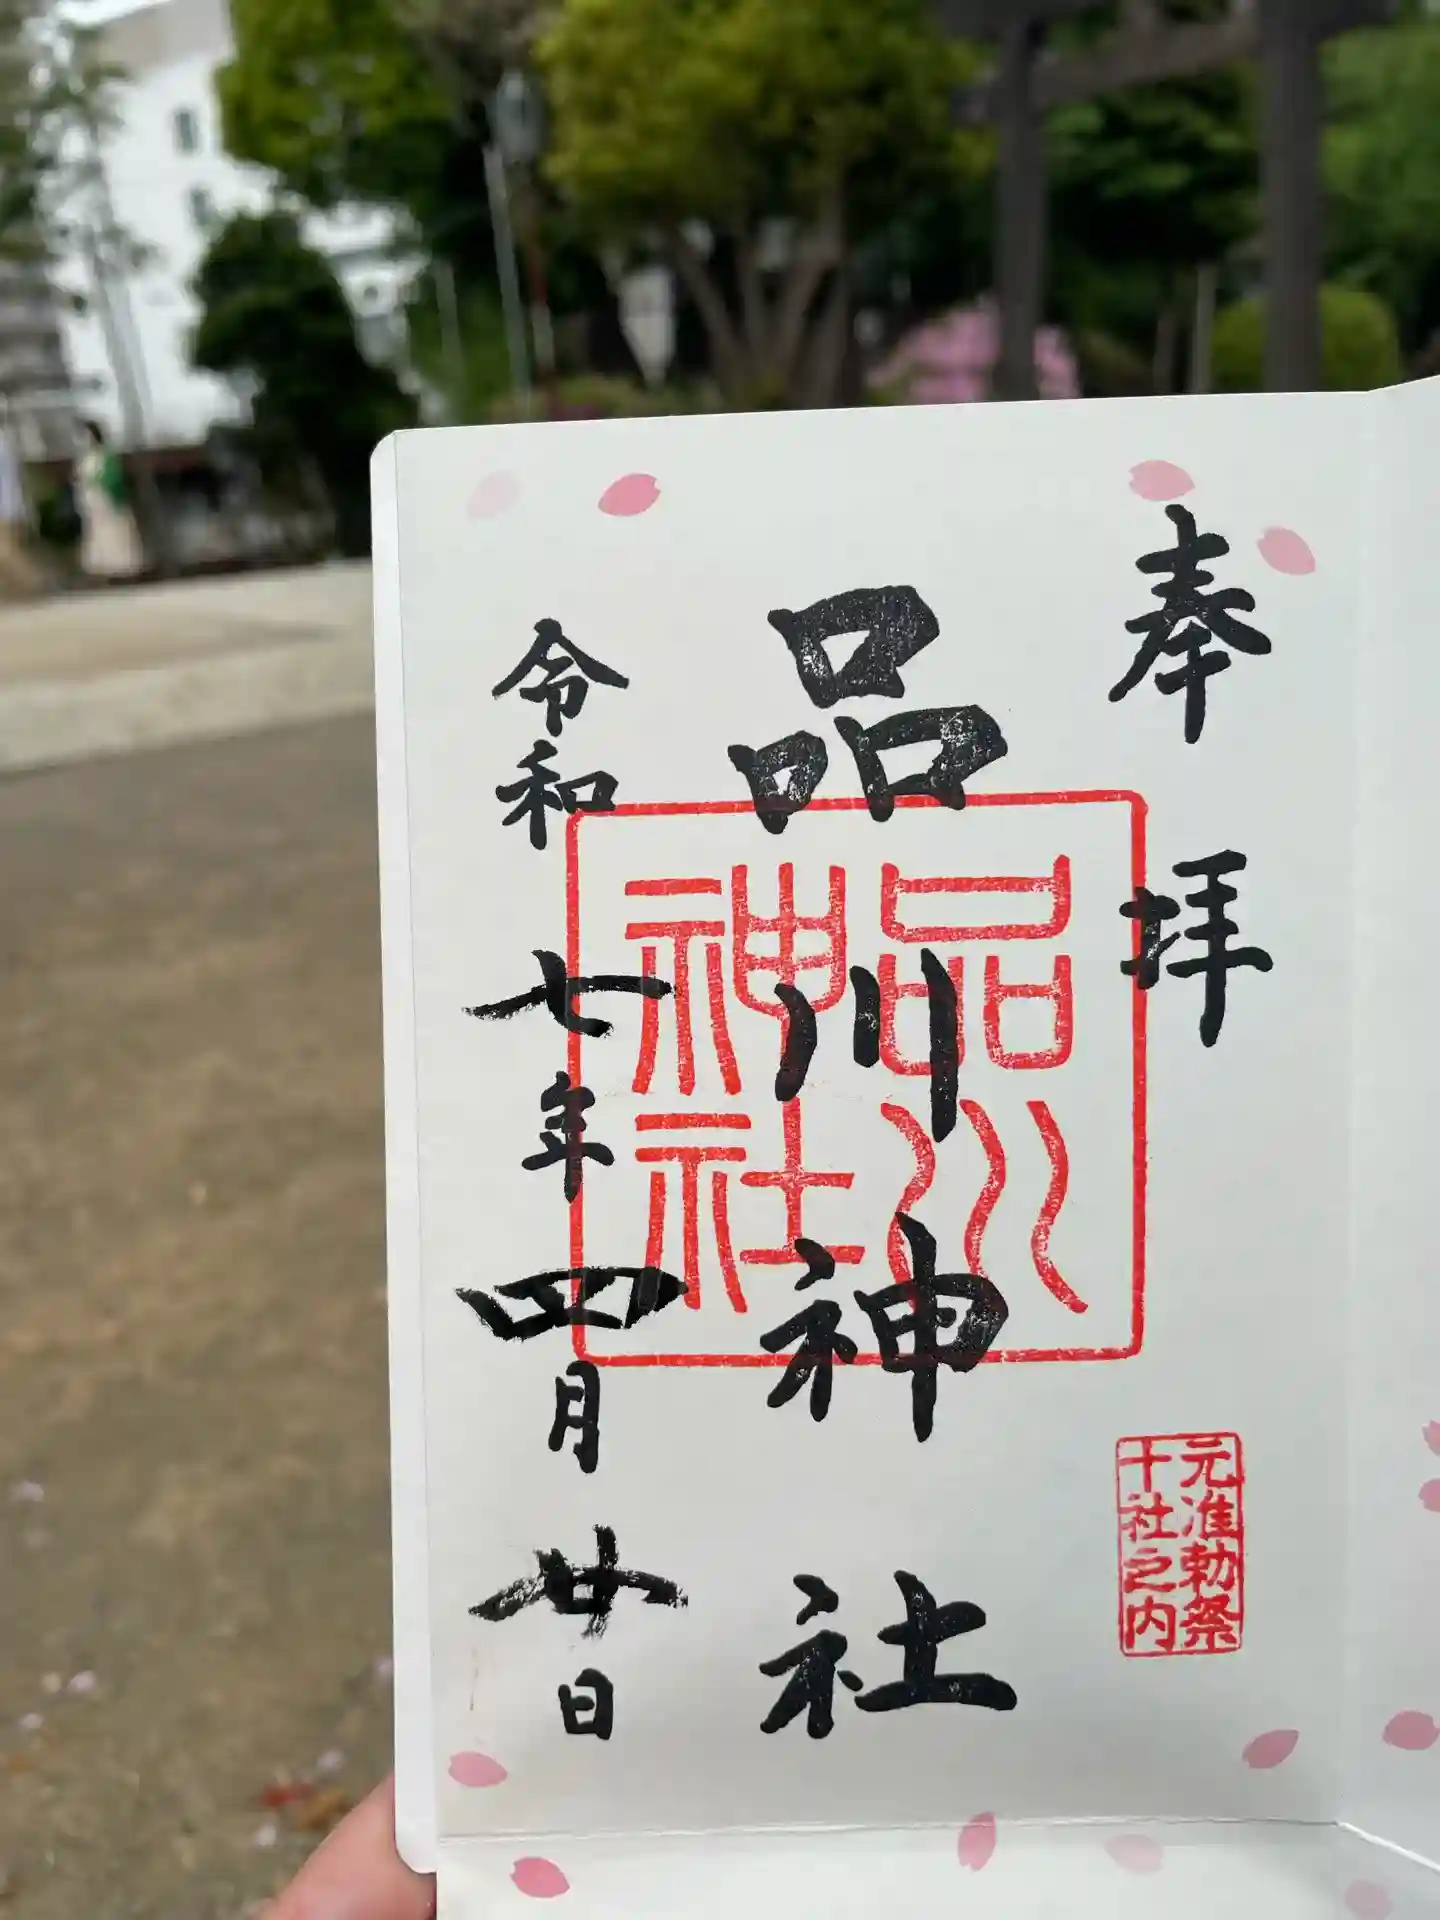 奉拝
品川神社
令和七年四月廿日
品川
神社
元准勅祭
十社之内